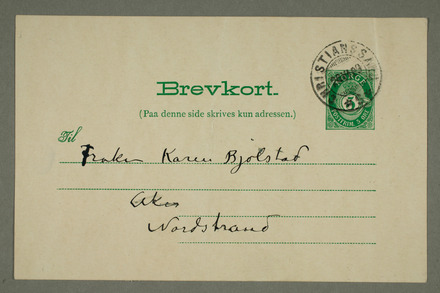 Brevkort.
(Paa denne side skrives kun adressen.)
Til
Frøken Karen Bjølstad
Aker
Nordstrand
NORGE
5
POSTFRIM. 5 ØRE